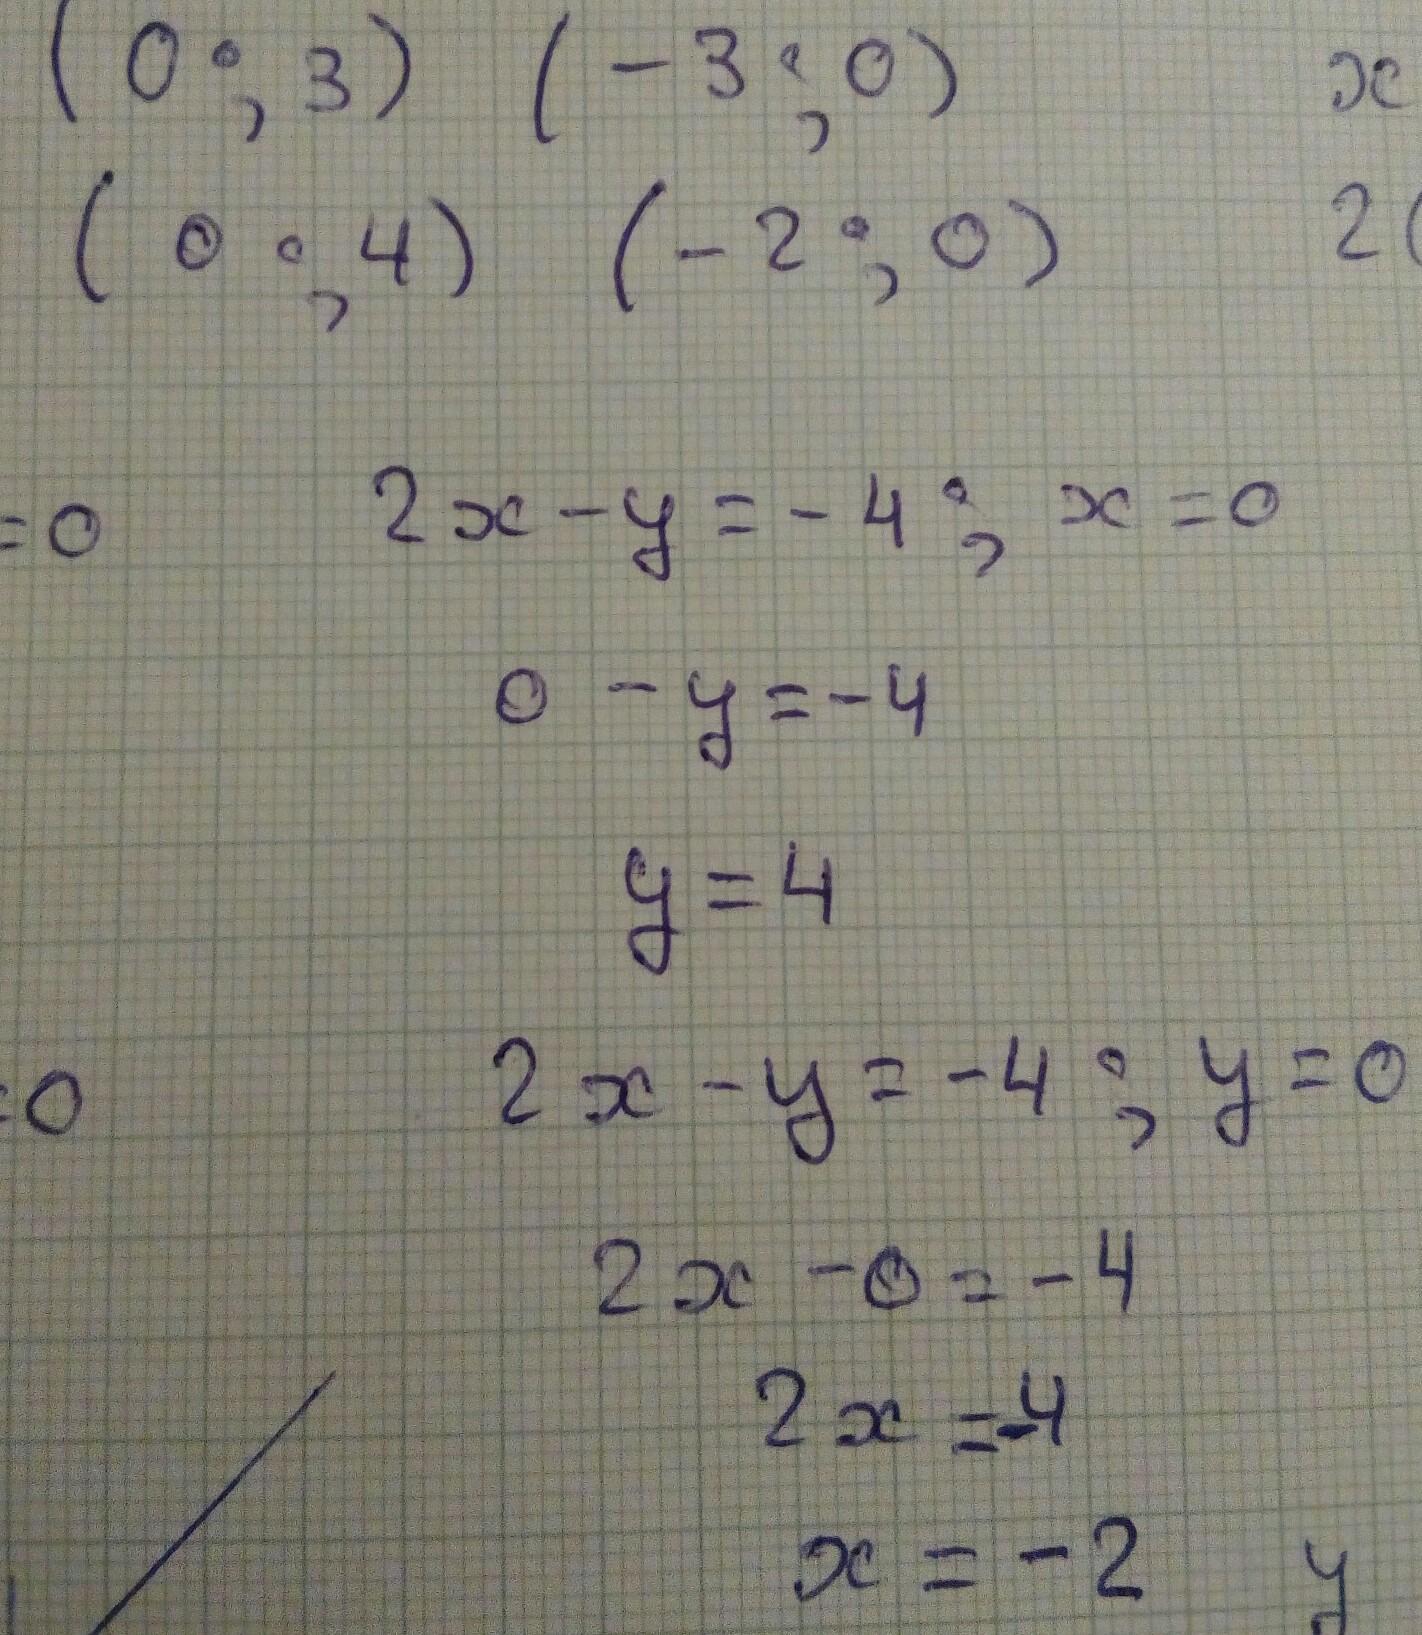 (0 ; 3) (-3 ; 0) x
(0 ; 4) (-2 ; 0) 2(
=0 2x - y = -4 ; x = 0
0 - y = -4
y = 4
=0 2x - y = -4 ; y = 0
2x - 0 = -4
2x = -4
x = -2 y